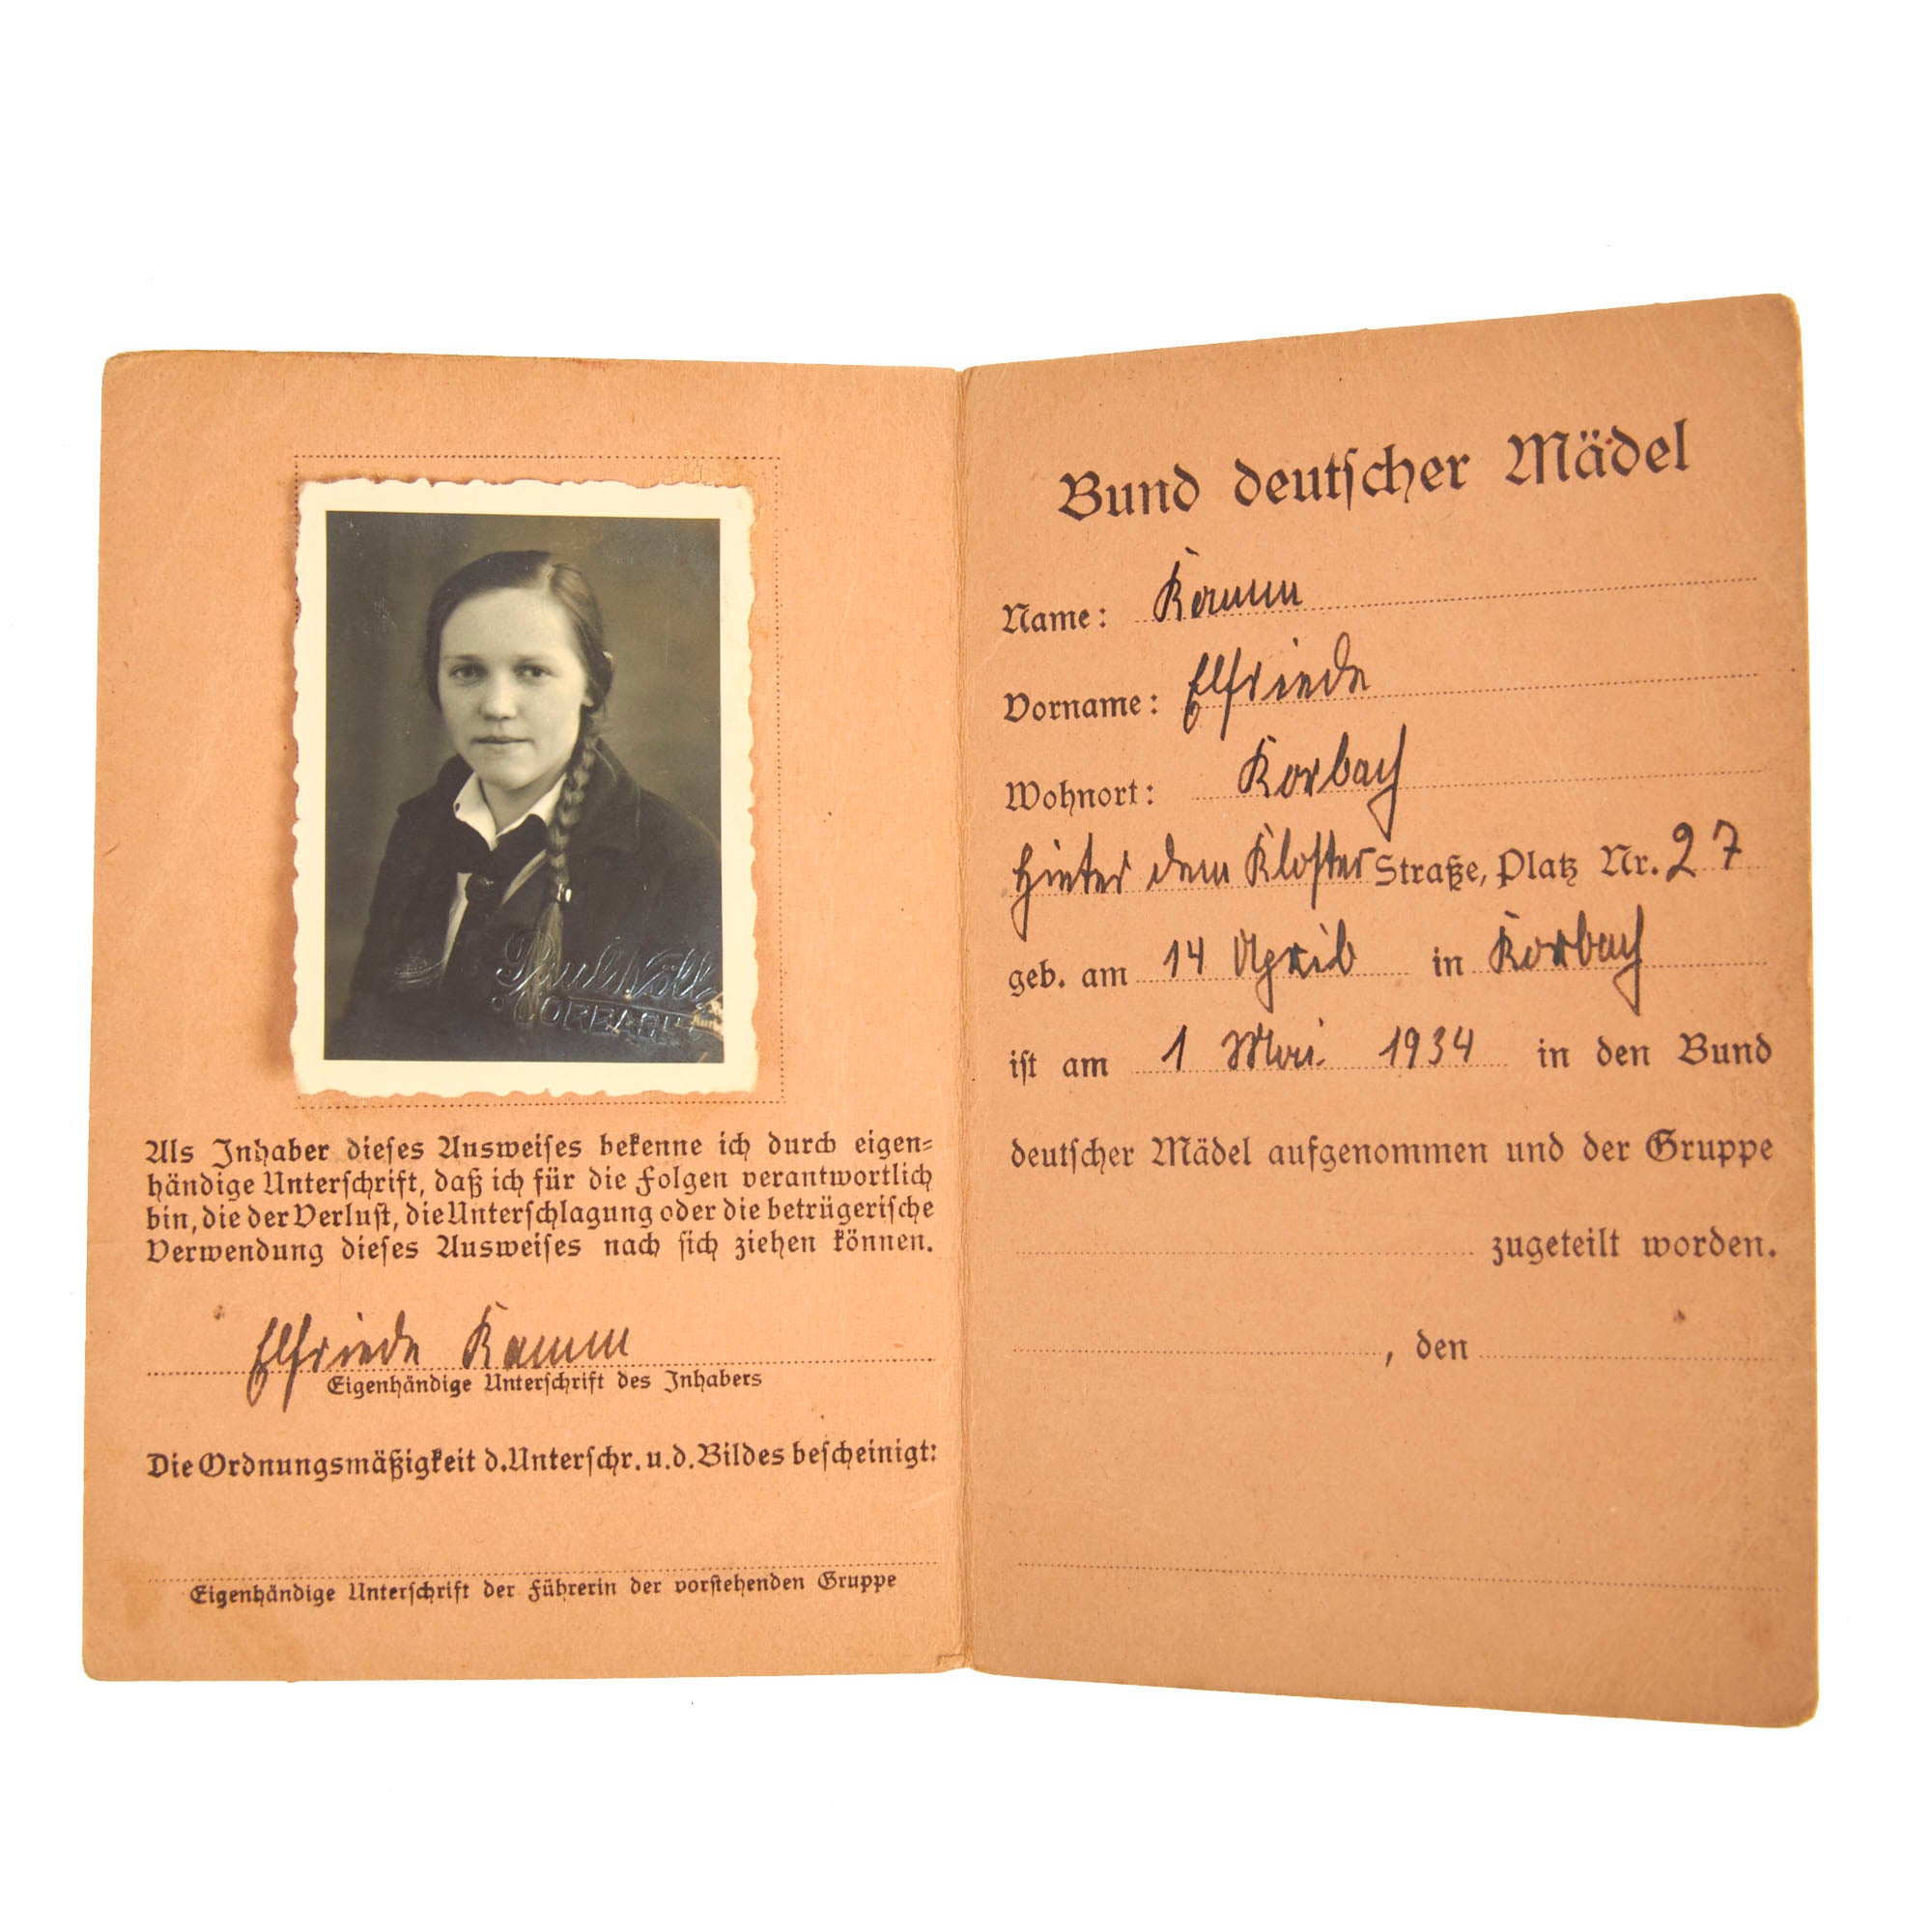 Paul Nölle
CORBACH
Als Inhaber dieses Ausweises bekenne ich durch eigen=
händige Unterschrift, daß ich für die Folgen verantwortlich
bin, die der Verlust, die Unterschlagung oder die betrügerische
Verwendung dieses Ausweises nach sich ziehen können.
Elfriede Kamm
Eigenhändige Unterschrift des Inhabers
Die Ordnungsmäßigkeit d. Unterschr. u. d. Bildes bescheinigt:
Eigenhändige Unterschrift der Führerin der vorstehenden Gruppe
Bund deutscher Mädel
Name: Kamm
Vorname: Elfriede
Wohnort: Korbach
Hinter dem Kloster Straße, Platz Nr. 27
geb. am 14 April in Korbach
ist am 1 Mai 1934 in den Bund
deutscher Mädel aufgenommen und der Gruppe
zugeteilt worden.
, den